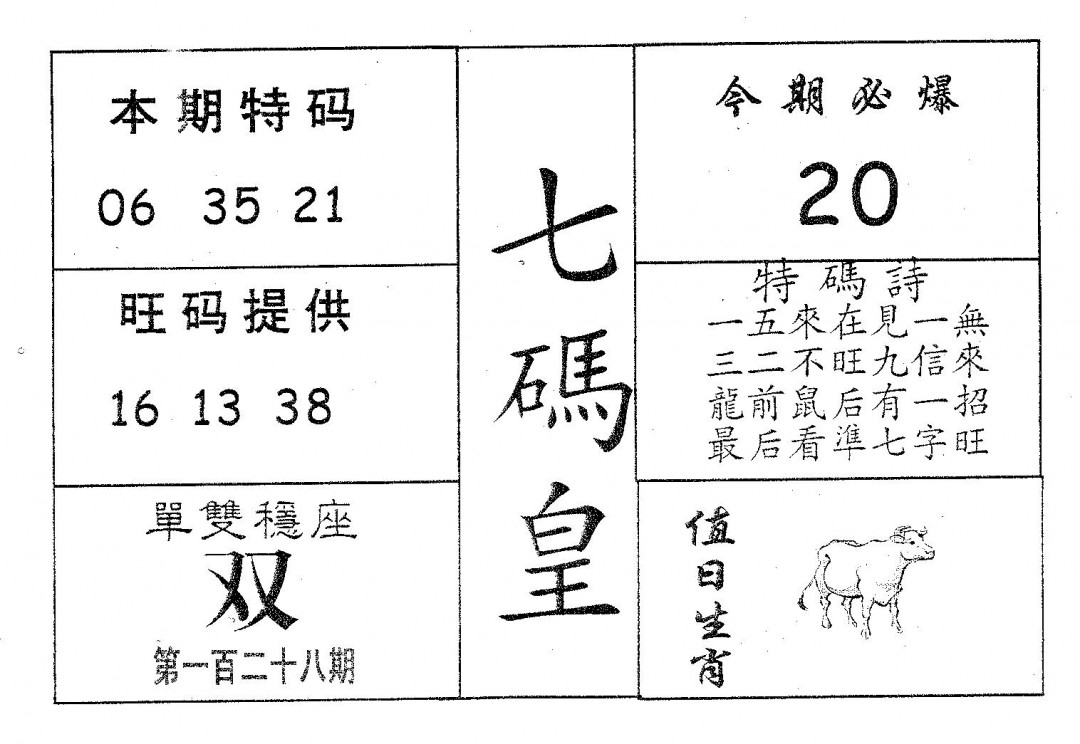 本期特码
06 35 21
旺码提供
16 13 38
單雙穩座
双
第一百二十八期
七碼皇
今期必爆
20
特碼詩
一五來在見一無
三二不旺九信來
龍前鼠后有一招
最后看準七字旺
值日生肖